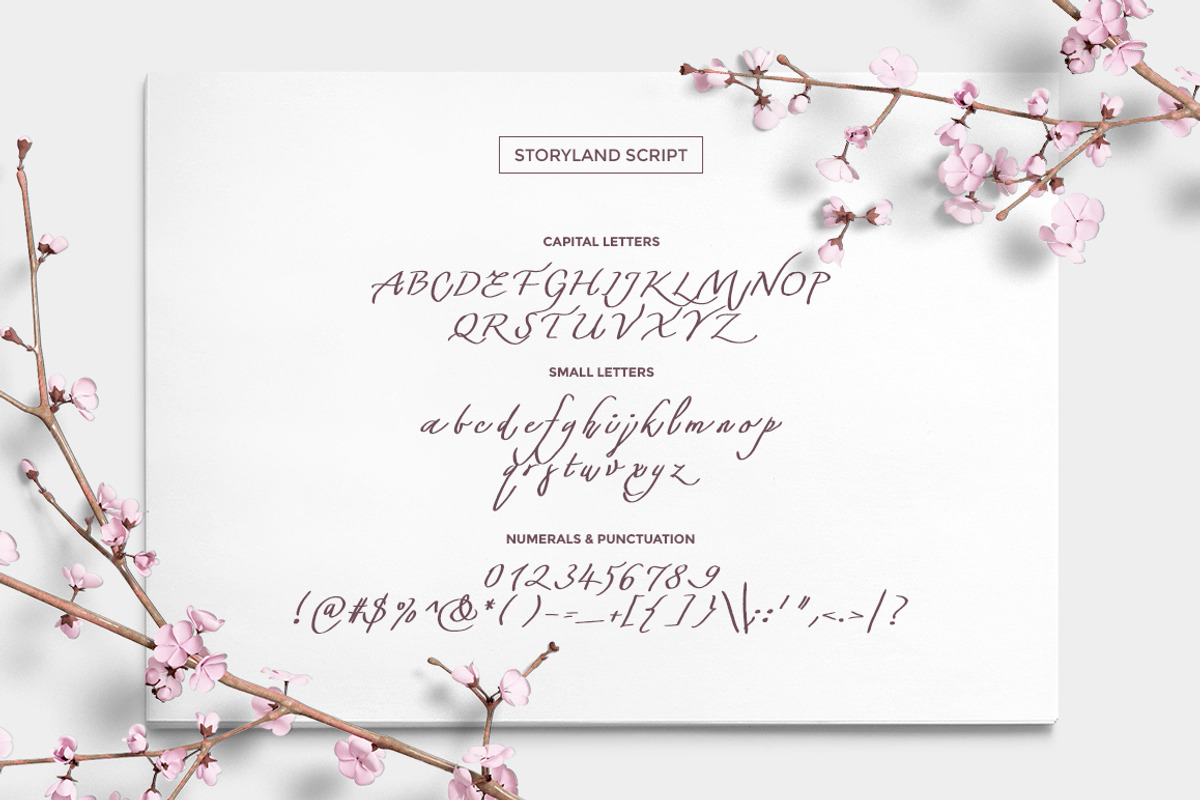 STORYLAND SCRIPT
CAPITAL LETTERS
ABCDEFGHIJKLMNOP
QRSTUVXYZ
SMALL LETTERS
abcdefghijklmnop
qrstuvxyz
NUMERALS & PUNCTUATION
0123456789
!@#$%^&*()-=_+[{]}\|;:'",<.>/?